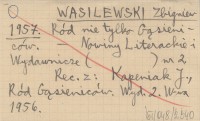 WASILEWSKI Zbigniew
1957. Ród nie tylko Gąsieni-
ców. - Nowiny Literackie i
Wydawnicze ( ) nr 2
Rec. z: Kapeniak J.,
Ród Gąsieniców. Wyd. 2. W-wa
1956.